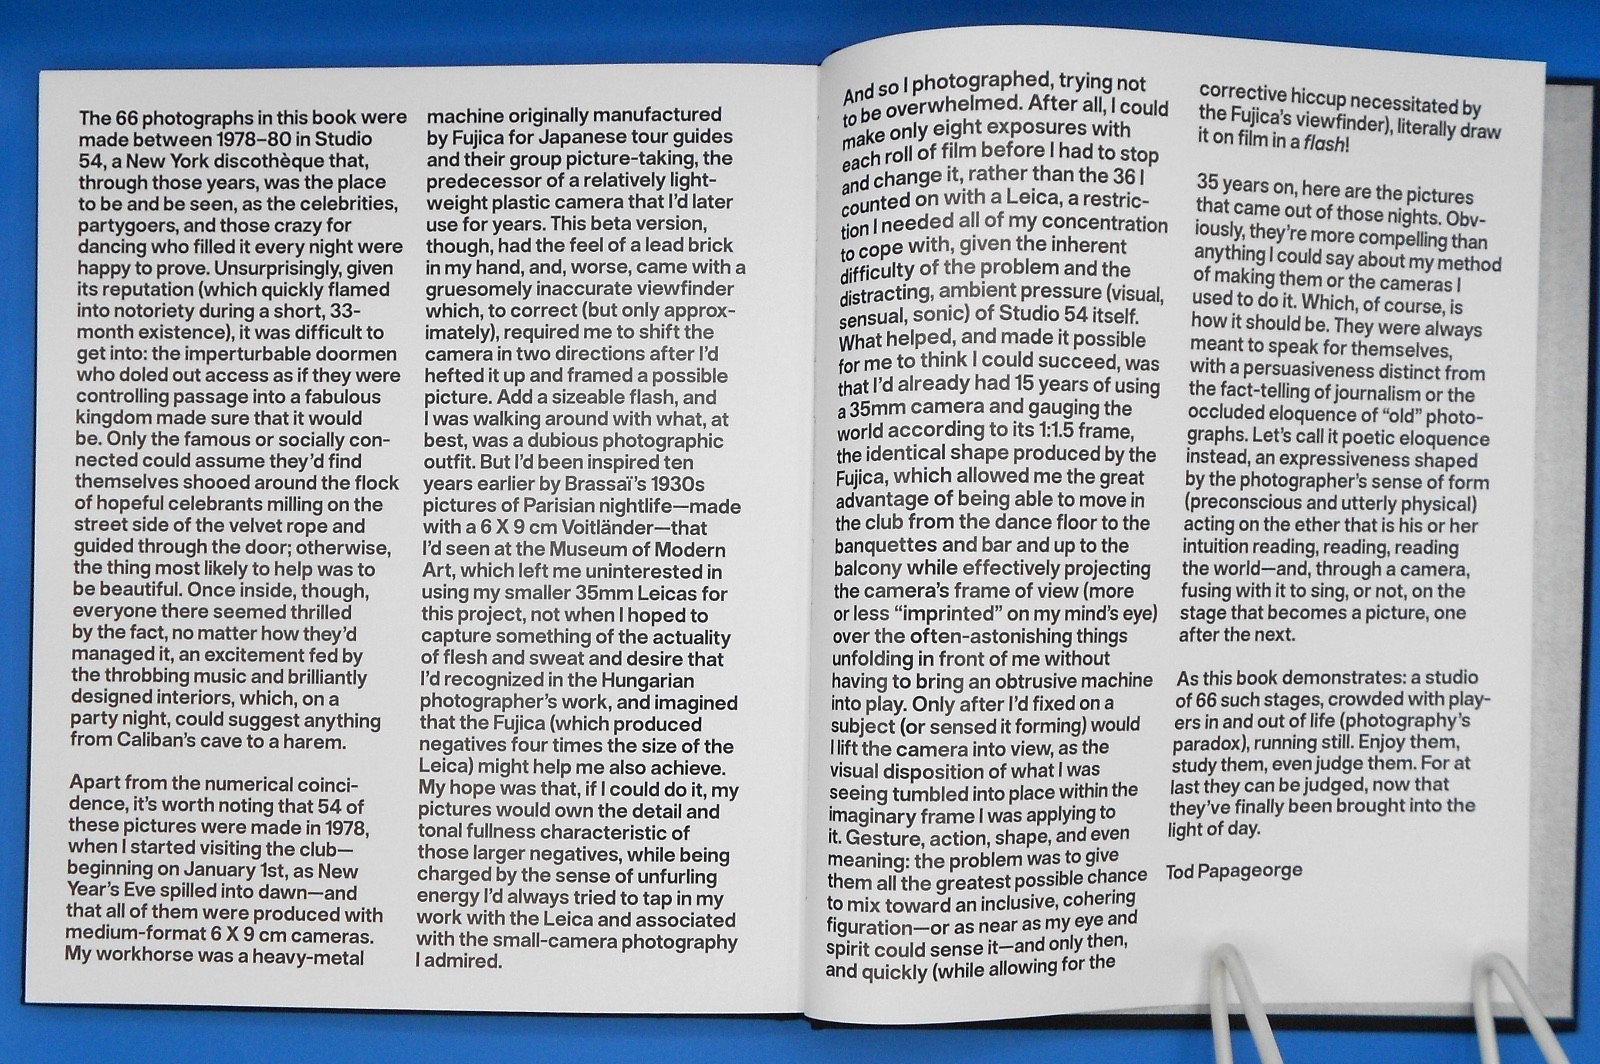 The 66 photographs in this book were
made between 1978–80 in Studio
54, a New York discothèque that,
through those years, was the place
to be and be seen, as the celebrities,
partygoers, and those crazy for
dancing who filled it every night were
happy to prove. Unsurprisingly, given
its reputation (which quickly flamed
into notoriety during a short, 33-
month existence), it was difficult to
get into: the imperturbable doormen
who doled out access as if they were
controlling passage into a fabulous
kingdom made sure that it would
be. Only the famous or socially con-
nected could assume they'd find
themselves shooed around the flock
of hopeful celebrants milling on the
street side of the velvet rope and
guided through the door; otherwise,
the thing most likely to help was to
be beautiful. Once inside, though,
everyone there seemed thrilled
by the fact, no matter how they'd
managed it, an excitement fed by
the throbbing music and brilliantly
designed interiors, which, on a
party night, could suggest anything
from Caliban's cave to a harem.
Apart from the numerical coinci-
dence, it's worth noting that 54 of
these pictures were made in 1978,
when I started visiting the club—
beginning on January 1st, as New
Year's Eve spilled into dawn—and
that all of them were produced with
medium-format 6 X 9 cm cameras.
My workhorse was a heavy-metal
machine originally manufactured
by Fujica for Japanese tour guides
and their group picture-taking, the
predecessor of a relatively light-
weight plastic camera that I'd later
use for years. This beta version,
though, had the feel of a lead brick
in my hand, and, worse, came with a
gruesomely inaccurate viewfinder
which, to correct (but only approx-
imately), required me to shift the
camera in two directions after I'd
hefted it up and framed a possible
picture. Add a sizeable flash, and
I was walking around with what, at
best, was a dubious photographic
outfit. But I'd been inspired ten
years earlier by Brassaï's 1930s
pictures of Parisian nightlife—made
with a 6 X 9 cm Voitländer—that
I'd seen at the Museum of Modern
Art, which left me uninterested in
using my smaller 35mm Leicas for
this project, not when I hoped to
capture something of the actuality
of flesh and sweat and desire that
I'd recognized in the Hungarian
photographer's work, and imagined
that the Fujica (which produced
negatives four times the size of the
Leica) might help me also achieve.
My hope was that, if I could do it, my
pictures would own the detail and
tonal fullness characteristic of
those larger negatives, while being
charged by the sense of unfurling
energy I'd always tried to tap in my
work with the Leica and associated
with the small-camera photography
I admired.
And so I photographed, trying not
to be overwhelmed. After all, I could
make only eight exposures with
each roll of film before I had to stop
and change it, rather than the 36 I
counted on with a Leica, a restric-
tion I needed all of my concentration
to cope with, given the inherent
difficulty of the problem and the
distracting, ambient pressure (visual,
sensual, sonic) of Studio 54 itself.
What helped, and made it possible
for me to think I could succeed, was
that I'd already had 15 years of using
a 35mm camera and gauging the
world according to its 1:1.5 frame,
the identical shape produced by the
Fujica, which allowed me the great
advantage of being able to move in
the club from the dance floor to the
banquettes and bar and up to the
balcony while effectively projecting
the camera's frame of view (more
or less “imprinted” on my mind's eye)
over the often-astonishing things
unfolding in front of me without
having to bring an obtrusive machine
into play. Only after I'd fixed on a
subject (or sensed it forming) would
I lift the camera into view, as the
visual disposition of what I was
seeing tumbled into place within the
imaginary frame I was applying to
it. Gesture, action, shape, and even
meaning: the problem was to give
them all the greatest possible chance
to mix toward an inclusive, cohering
figuration—or as near as my eye and
spirit could sense it—and only then,
and quickly (while allowing for the
corrective hiccup necessitated by
the Fujica's viewfinder), literally draw
it on film in a flash!
35 years on, here are the pictures
that came out of those nights. Obv-
iously, they're more compelling than
anything I could say about my method
of making them or the cameras I
used to do it. Which, of course, is
how it should be. They were always
meant to speak for themselves,
with a persuasiveness distinct from
the fact-telling of journalism or the
occluded eloquence of “old” photo-
graphs. Let's call it poetic eloquence
instead, an expressiveness shaped
by the photographer's sense of form
(preconscious and utterly physical)
acting on the ether that is his or her
intuition reading, reading, reading
the world—and, through a camera,
fusing with it to sing, or not, on the
stage that becomes a picture, one
after the next.
As this book demonstrates: a studio
of 66 such stages, crowded with play-
ers in and out of life (photography's
paradox), running still. Enjoy them,
study them, even judge them. For at
last they can be judged, now that
they've finally been brought into the
light of day.
Tod Papageorge